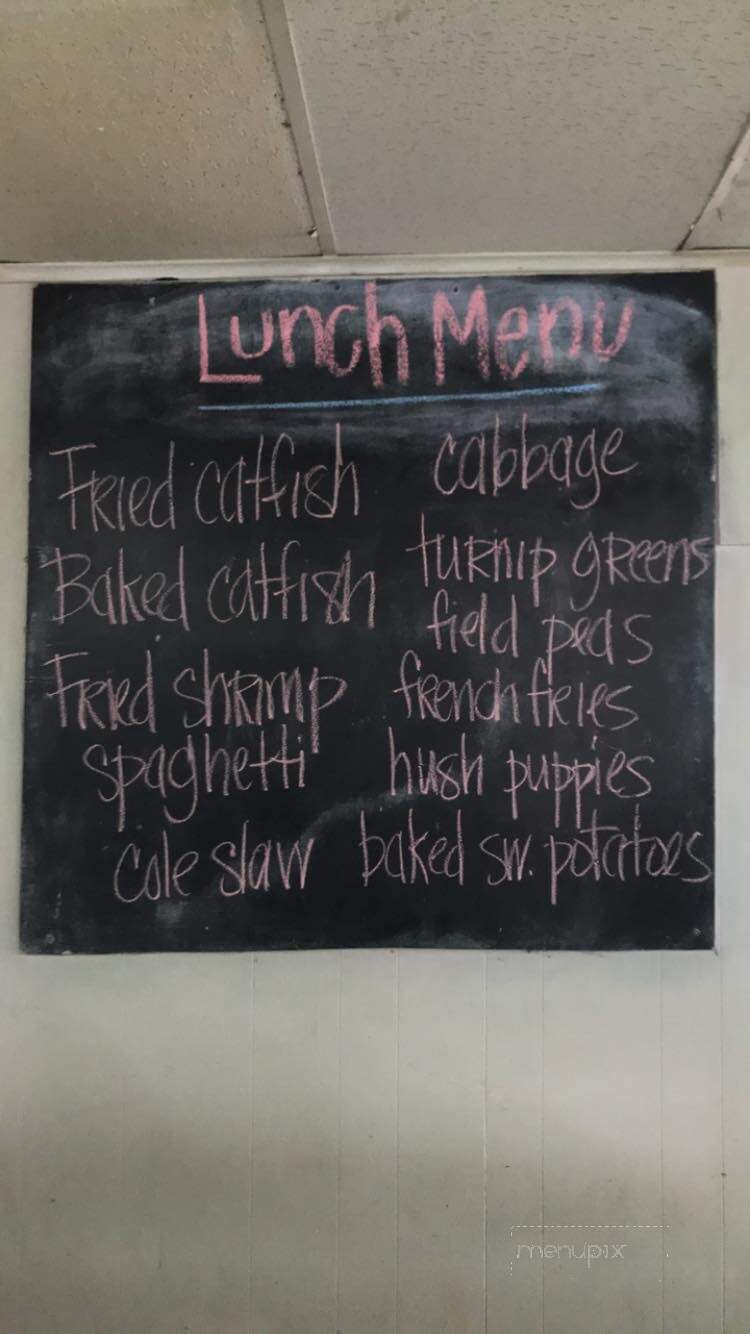 Lunch Menu
Fried catfish
Baked catfish
Fried shrimp
spaghetti
cole slaw
cabbage
turnip greens
field peas
french fries
hush puppies
baked sw. potatoes
menupix